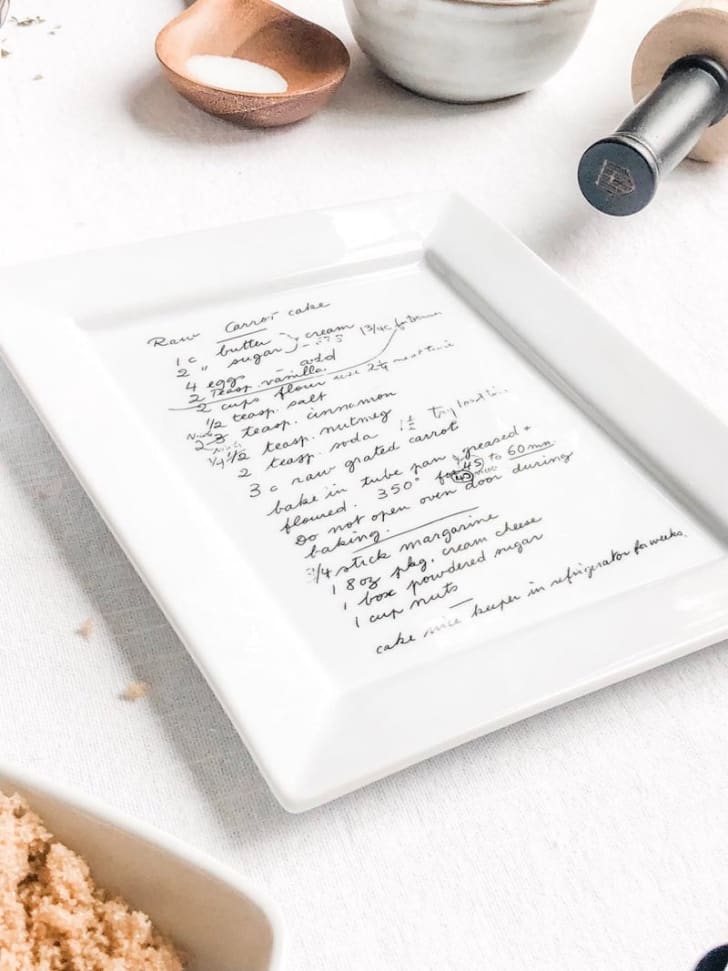 Raw Carrot cake
1 c butter } cream 1 3/4 c for
2 " sugar
4 eggs add
2 teasp. vanilla
2 cups flour use 2 1/4 next time
1/2 teasp. salt
2-3 teasp. cinnamon
1/4 1/2 teasp. nutmeg
2 teasp. soda 1 1/2 try
3 c raw grated carrots
bake in tube pan greased +
floured. 350° for 45 to 60 min
Do not open oven door during
baking.
3/4 stick margarine
1 8oz pkg. cream cheese
1 box powdered sugar
1 cup nuts
cake nice keeper in refrigerator for weeks.